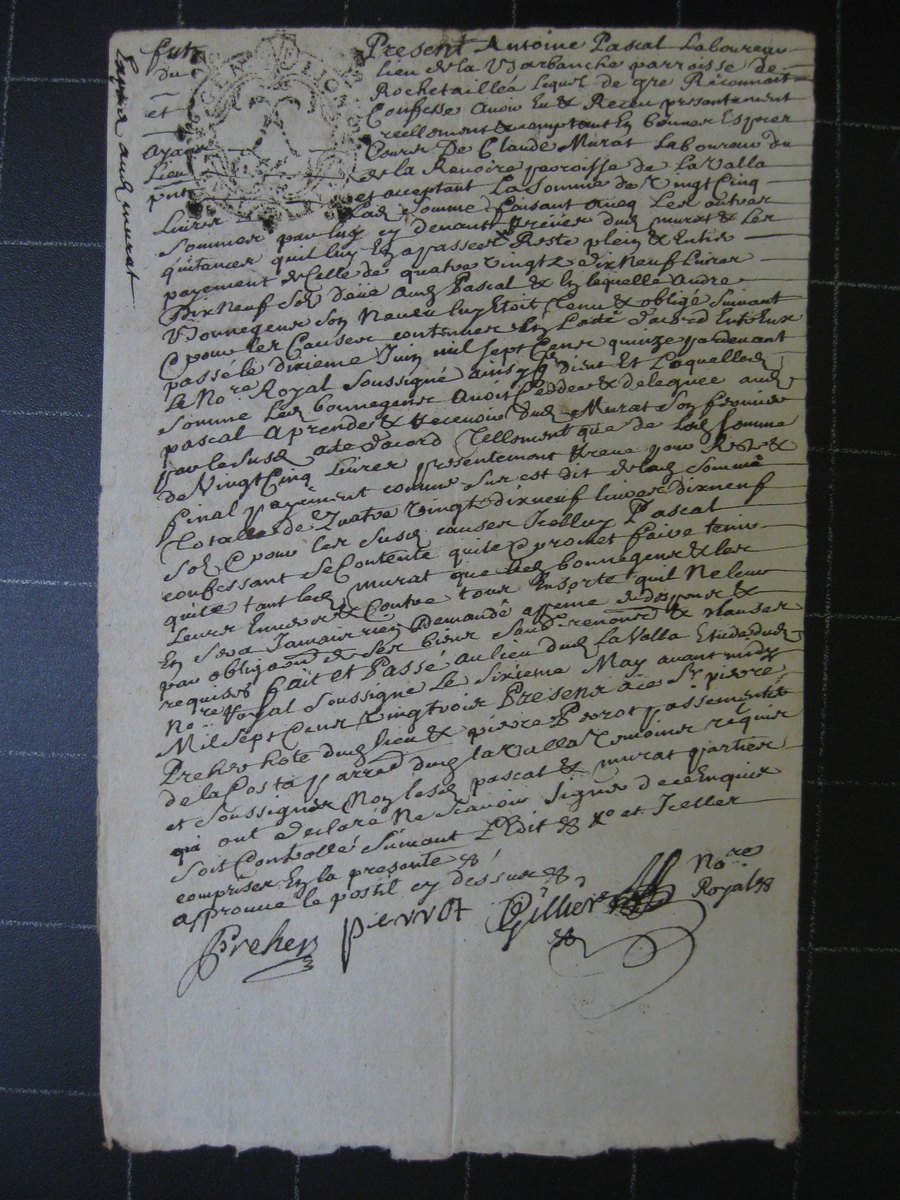 fut Present Antoine Pascal Laboureur
du lieu de la Barbanche parroisse de
et Rochetaillée Lequel de gré Reconnoit
Confesse Avoir Eu & Receu presentement
ayant réellement & comptant En bonnes Espèces
Lieu Cours De Claude Murat Laboureur du
pnt de la Renoire parroisse de La Valla
et acceptant La Somme de Vingt Cinq
Livres Lad Somme faisant avecq Les autres
Sommes par luy cy devant dud murat & Les
quitances quil luy En a passées Reste plein & Entier
payement de Celle de quatre vingt & dix Neuf Livres
Dix Neuf Sols deüe aud Pascal & En laquelle Andre
Bonnegens Son Neveu luy Etoit Tenu & obligé Suivant
& pour Les Causes contenues En Lacte dacord Entr Eux
passé le dixieme Juin mil Sept Cens quinze pardevant
Le Nore Royal Soussigné ainsy quil dient Et Laquelle
Somme Led bonnegens Avoit Ceddée & deleguée aud
pascal A prendre & Recevoir dud Murat Son fermier
par le Susd acte dacord Tellement que de Lad Somme
de Vingt Cinq Livres presentement Receue pour Reste &
final payement comme Sus est dit de lad Somme
Totale de Quatre Vingt dix neuf livres dix neuf
Sols & pour les Susd causes Icelluy Pascal
confessant Se Contente quitte & promet faire tenir
quitte tant led murat que led bonnegens & les
Leurs Envers & Contre tous Ensorte quil Ne leur
En Sera Jamais rien Demandé a peine de despens &
par obligaõn de Ses biens Soub renoncõn & clauses
requises fait et Passé au lieu dud La Valla Etude dud
Nore Royal Soussigné Le Sixieme May avant midy
Mil Sept Cens Vingt trois Presens a ce Sr pierre
Preher hôte dud lieu & pierre Perrot passementier
de la Posta parred dud La Valla Temoins requis
et Soussignés Non lesd pascal & murat partier
qui ont declaré Ne Scavoir Signer de ce Enquis
Soit Controllé Suivant L Edit & ro et Icelles
comprises En la presente &
approuve le postil cy dessus &
Preher
pierrot
Gillier Nore
Royal &
Payé aud murat